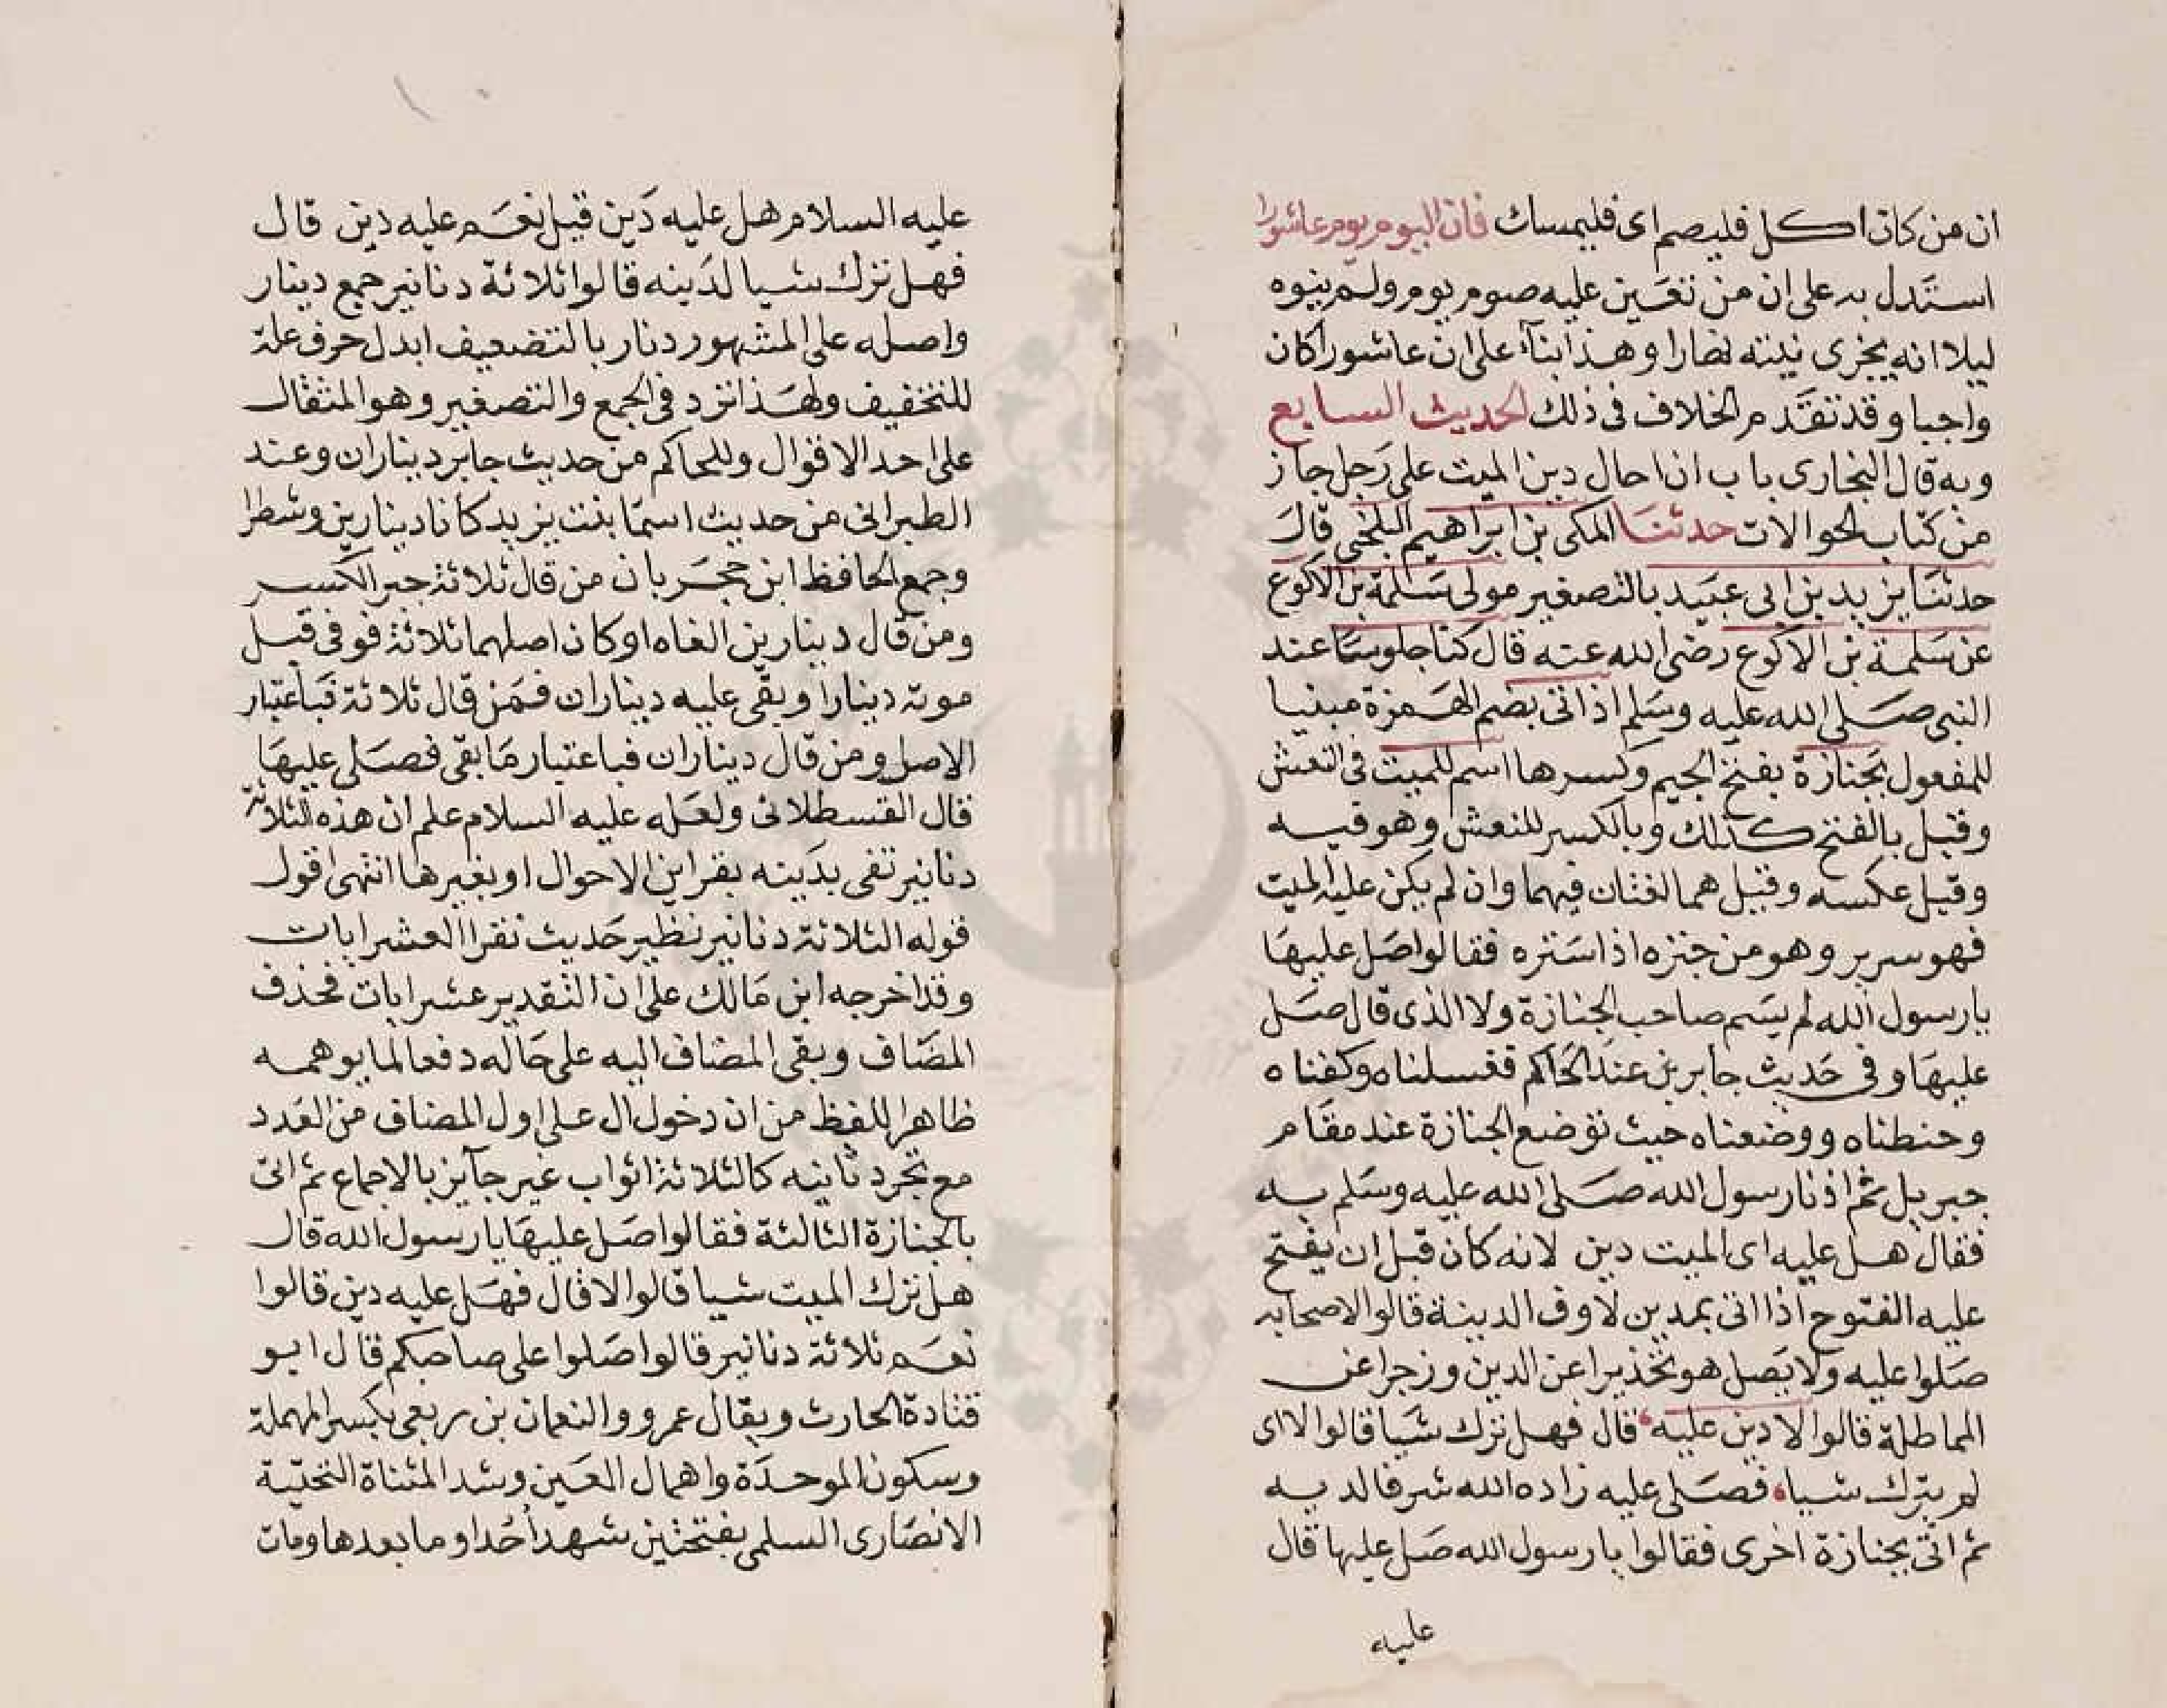 ان من كان اكل فليصم اى فليمسك فان اليوم يوم عاشورا
استدل به على ان من تعين عليه صوم يوم ولم ينوه
ليلا انه يجزى نيته نهارا وهذا بناء على ان عاشورا كان
واجبا وقد تقدم الخلاف فى ذلك الحديث السابع
وبه قال البخارى باب ان احال دين الميت على رجل جاز
من كتاب الحوالات حدثنا المكى بن ابراهيم البلخى قال
حدثنا يزيد بن ابى عبيد بالتصغير مولى سلمة بن الاكوع
عن سلمة بن الاكوع رضى الله عنه قال كنا جلوسا عند
النبى صلى الله عليه وسلم اذ اتى بضم الهمزة مبنيا
للمفعول بجنازة بفتح الجيم وكسرها اسم للميت فى النعش
وقيل بالفتح كذلك وبالكسر للنعش وهو فيه
وقيل عكسه وقيل هما لغتان فيهما وان لم يكن عليه الميت
فهو سرير وهو من جنزه اذا ستره فقالوا صل عليها
يا رسول الله لم يسم صاحب الجنازة ولا الذى قال صل
عليها وفى حديث جابر بن عند الحاكم فغسلناه وكفناه
وحنطناه ووضعناه حيث توضع الجنازة عند مقام
جبريل ثم اذنا رسول الله صلى الله عليه وسلم به
فقال هل عليه اى الميت دين لانه كان قبل ان يفتح
عليه الفتوح اذا اتى بمدين لا وف الدينة قالوا لاصحابه
صلوا عليه ولا يصل هو تحذيرا عن الدين وزجرا عن
المماطلة قالوا لا دين عليه قال فهل ترك شيا قالوا لا اى
لم يترك شيا فصلى عليه زاده الله شرفا لديه
ثم اتى بجنازة اخرى فقالوا يا رسول الله صل عليها قال
عليه
عليه السلام هل عليه دين قيل نعم عليه دين قال
فهل ترك شيا لدينه قالوا ثلاثة دنانير جمع دينار
واصله على المشهور دنار بالتضعيف ابدل حرف علة
للتخفيف ولهذا ترد فى الجمع والتصغير وهو المثقال
على احد الاقوال وللحاكم من حديث جابر ديناران وعند
الطبرانى من حديث اسما بنت يزيد كانا دينارين وشطرا
وجمع الحافظ ابن حجر بان من قال ثلاثة جبر الكسر
ومن قال دينارين الغاه او كان اصلهما ثلاثة فوفى قبل
موته دينارا وبقى عليه ديناران فمن قال ثلاثة فباعتبار
الاصل ومن قال ديناران فباعتبار ما بقى فصلى عليها
قال القسطلانى ولعله عليه السلام علم ان هذه الثلاثة
دنانير تفى بدينه بقراين الاحوال او بغيرها انتهى اقول
قوله الثلاثة دنانير نظير حديث نقرا العشر ايات
وقد اخرجه ابن مالك على ان التقدير عشر ايات فحذف
المضاف وبقى المضاف اليه على حاله دفعا لما يوهمه
ظاهر اللفظ من ان دخول ال على اول المضاف من العدد
مع تجرد ثانيه كالثلاثة اثواب غير جايز بالاجماع ثم اتى
بالجنازة الثالثة فقالوا صل عليها يا رسول الله قال
هل ترك الميت شيا قالوا لا قال فهل عليه دين قالوا
نعم ثلاثة دنانير قالوا صلوا على صاحبكم قال ابو
قتادة الحارث ويقال عمرو والنعمان بن ربعى بكسر المهملة
وسكون الموحدة واهمال العين وشد المثناة التحتية
الانصارى السلمى بفتحتين شهد احدا وما بعدها ومات